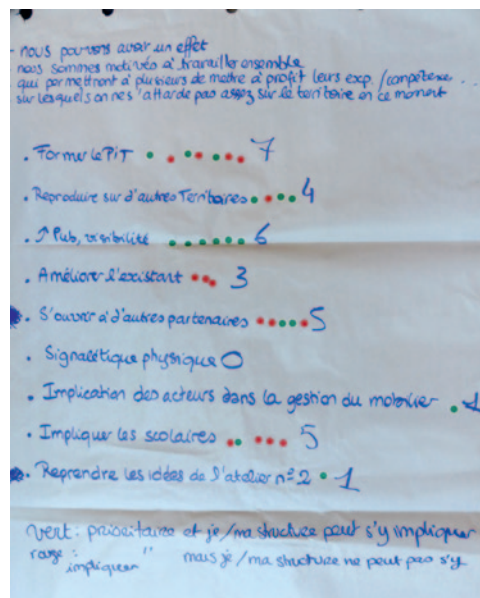 - nous pouvons avoir un effet
nous sommes motivés à travailler ensemble
qui permettront à plusieurs de mettre à profit leurs exp. / compétence...
sur lesquels on ne s'attarde pas assez sur le territoire en ce moment
. Former le PiT 7
. Reproduire sur d'autres Territoires 4
. ↗ Pub, visibilité 6
. Améliorer l'existant 3
. S'ouvrir à d'autres partenaires 5
. Signalétique physique 0
. Implication des acteurs dans la gestion du mobilier 1
. Impliquer les scolaires 5
. Reprendre les idées de l'atelier n°2 1
vert : prioritaire et je/ma structure peut s'y impliquer
rouge : " mais je/ma structure ne peut pas s'y
impliquer